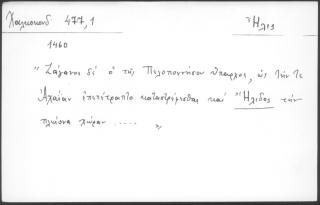 Χαλκοκονδ 477,1 Ἦλις
1460
"Ζάγανος δὲ ὁ τῆς Πελοποννήσου ὕπαρχος, ὡς τήν τε
Ἀχαΐαν ἐπετέτραπτο καταστρέψεσθαι καὶ Ἤλιδος τὴν
πλείονα χώραν ..... "